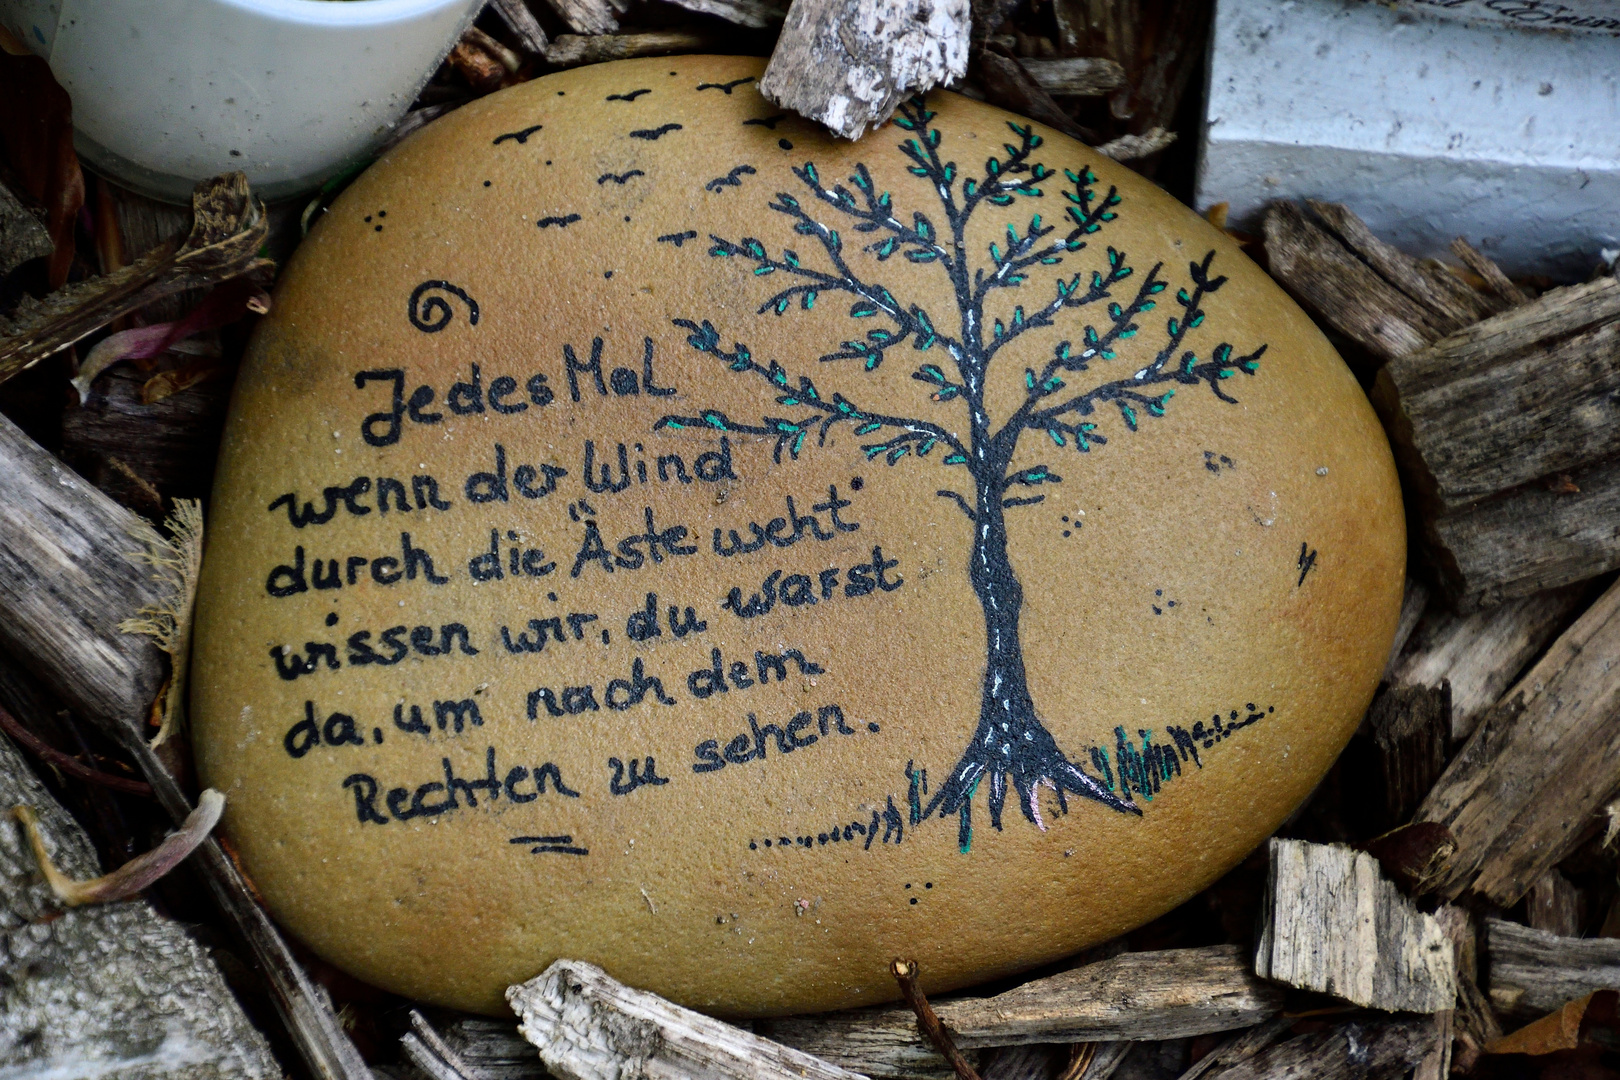 Jedes Mal
wenn der Wind
durch die Äste weht
wissen wir, du warst
da, um nach dem
Rechten zu sehen.